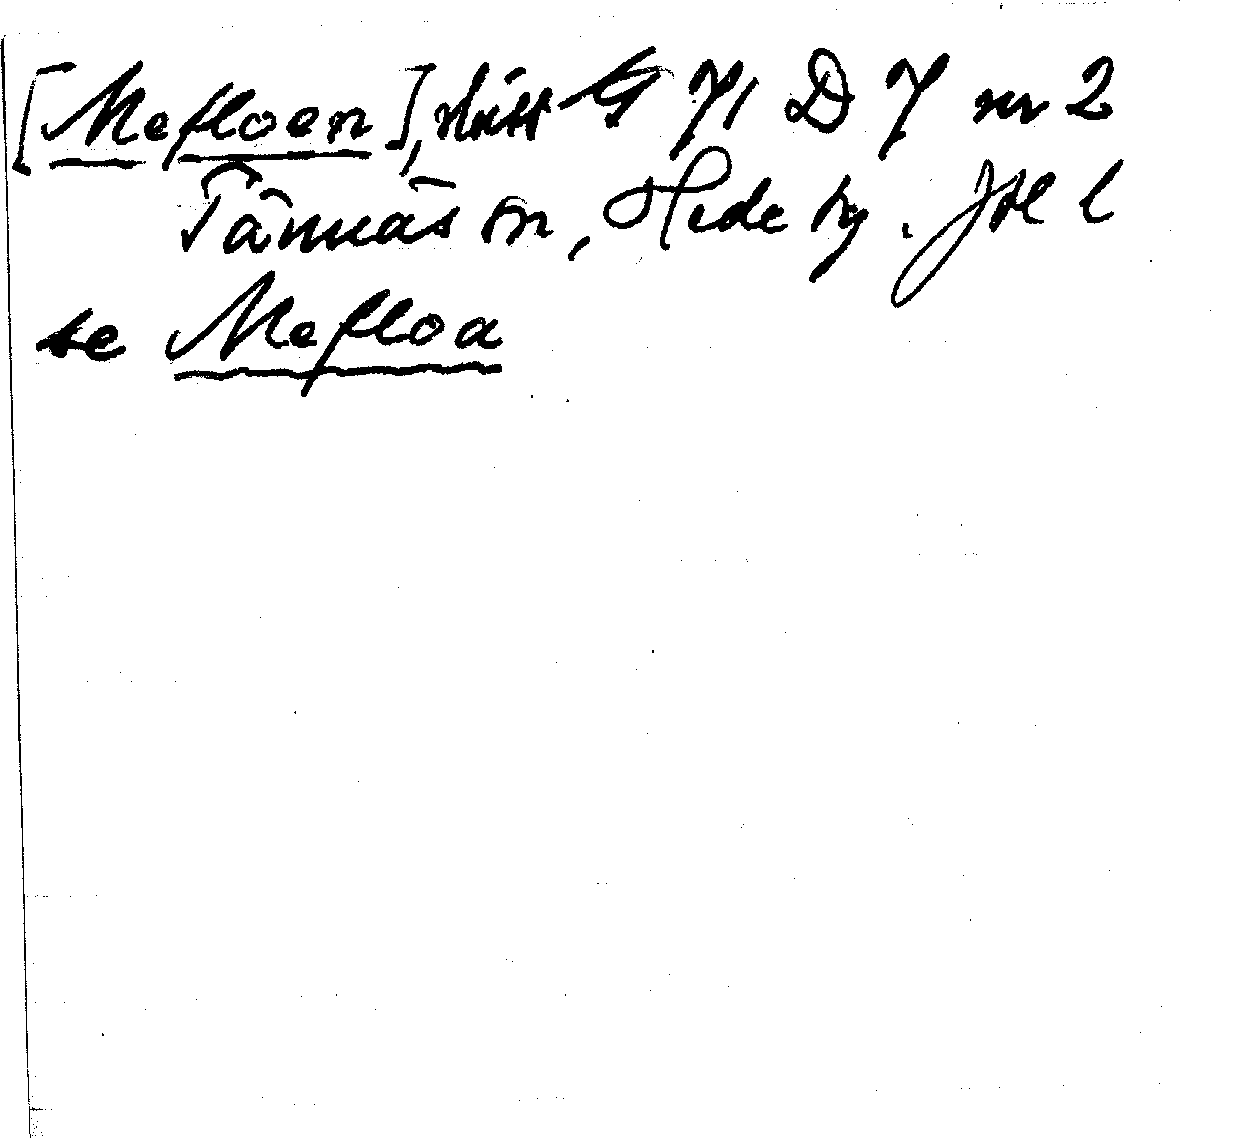 [Mefloen], skiss G 71 D 7 nr 2
Tännäs sn, Hede tg. Jtl l
se Mefloa